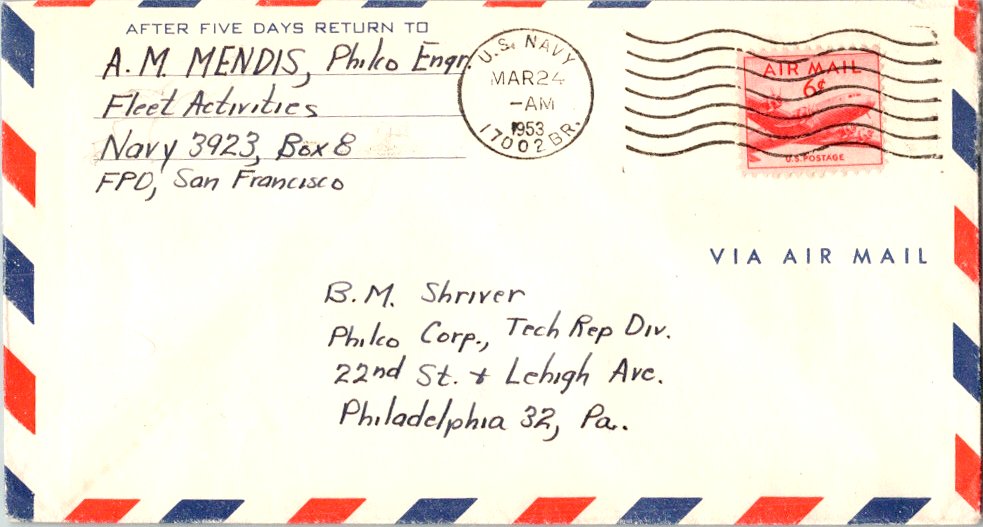 AFTER FIVE DAYS RETURN TO
A. M. MENDIS, Philco Engr.
Fleet Activities
Navy 3923, Box 8
FPO, San Francisco
U.S. NAVY
MAR 24
-AM
1953
17002 BR.
AIR MAIL
6¢
U.S. POSTAGE
VIA AIR MAIL
B. M. Shriver
Philco Corp., Tech Rep Div.
22nd St. & Lehigh Ave.
Philadelphia 32, Pa.